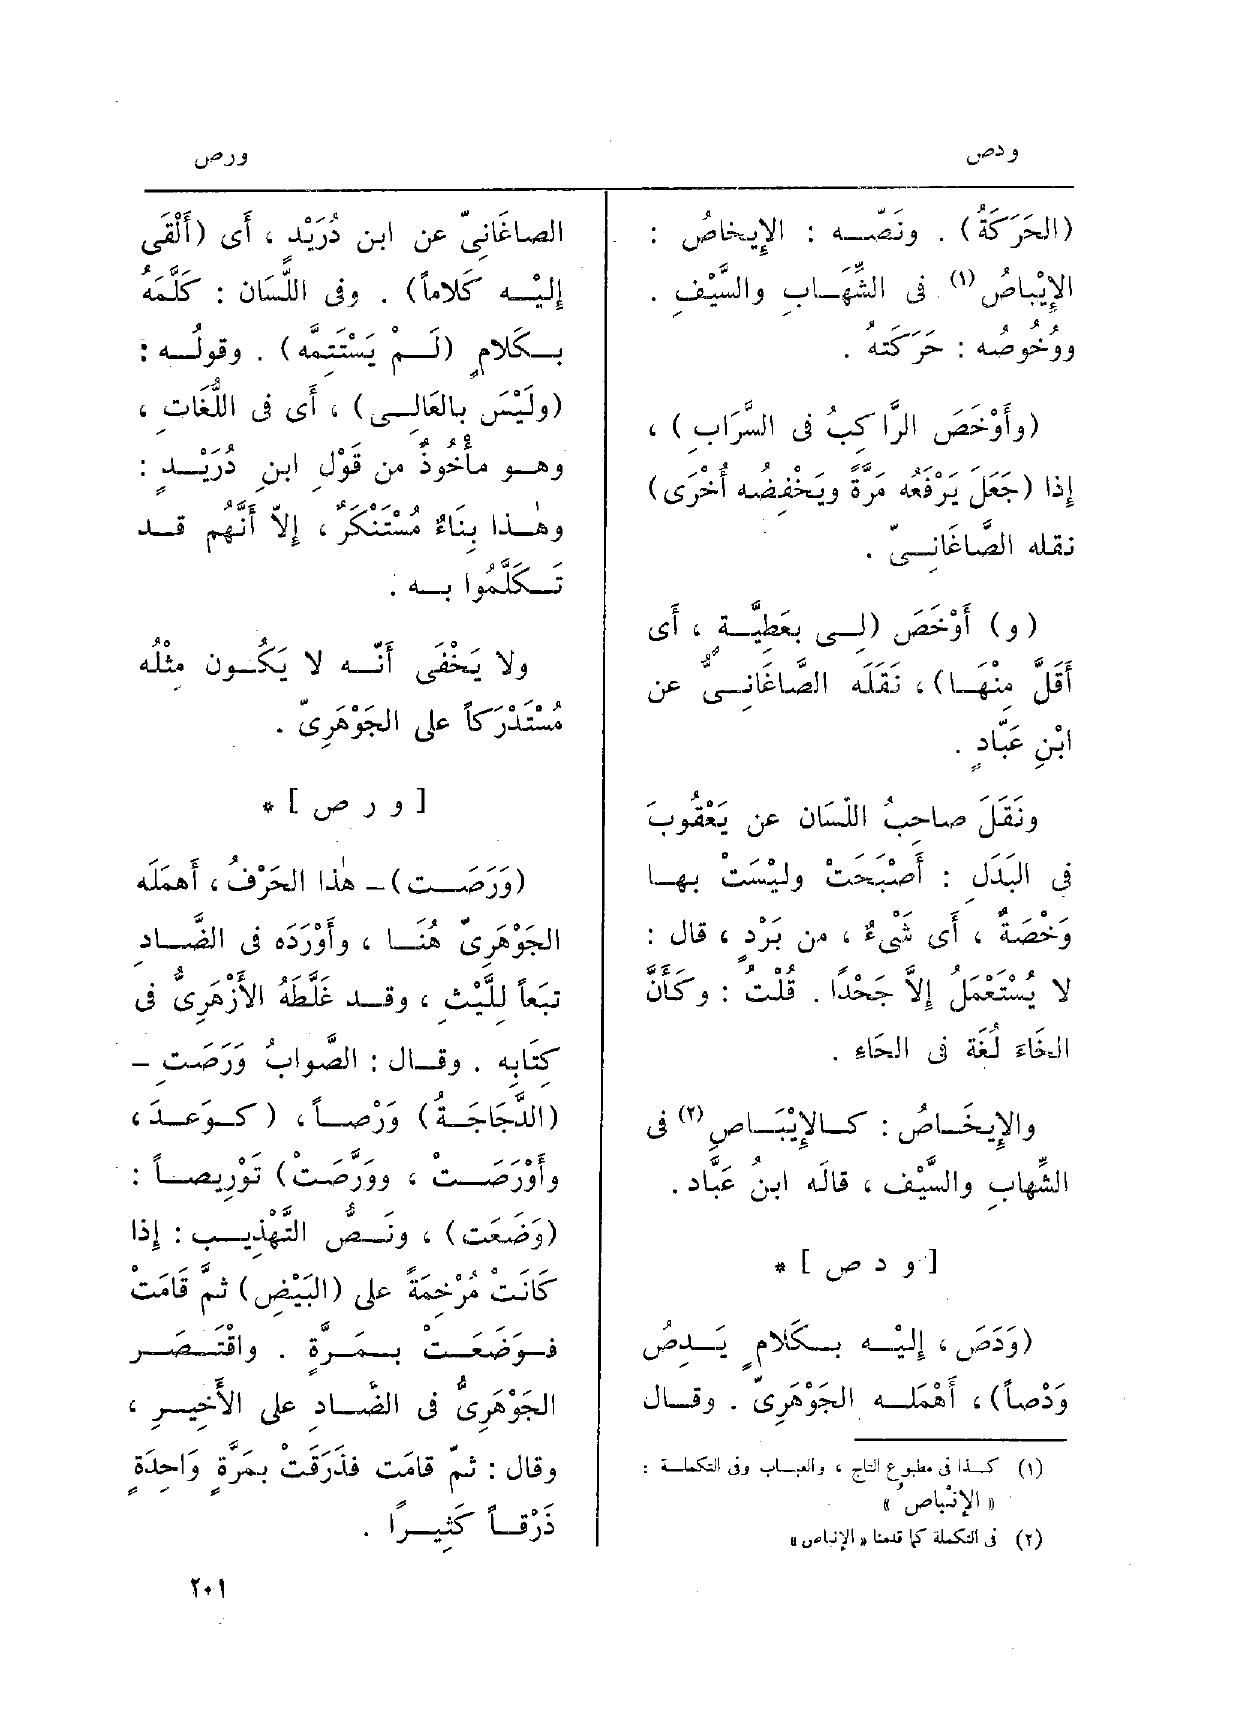 ودص
ورص
(الحَرَكَةُ) . ونَصّه : الإيخاصُ :
الإيْباصُ (١) فى الشِّهَابِ والسَّيْفِ .
ووُخُوصُه : حَرَكَتُه .
(وأَوْخَصَ الرَّاكِبُ فى السَّرَابِ) ،
إذا (جَعَلَ يَرْفَعُه مَرَّةً ويَخْفِضُه أُخْرَى)
نقله الصَّاغَانِىّ .
(و) أَوْخَصَ (لِى بعَطِيَّة ، أَى
أَقَلَّ مِنْهَا) ، نَقَلَه الصَّاغَانِىُّ عن
ابْنِ عَبّادٍ .
ونَقَلَ صاحِبُ اللّسَان عن يَعْقُوبَ
فى البَدَلِ : أَصْبَحَتْ ولَيْسَتْ بها
وَخْصَةٌ ، أَى شَىْءٌ ، من بَرْدٍ ، قال :
لا يُسْتَعْمَلُ إلاَّ جَحْدًا . قُلْتُ : وكَأَنَّ
الخَاءَ لُغَة فى الحَاءِ .
والإيخَاصُ : كالإيْبَاصِ (٢) فى
الشِّهاب والسَّيْف ، قالَه ابنُ عَبَّاد .
[ و د ص ] *
(وَدَصَ ، إليْه بكَلامٍ يَدِصُ
وَدْصاً) ، أَهْمَلَه الجَوْهَرِىّ . وقال
(١) كذا فى مطبوع التاج ، والعباب وفى التكملة :
« الإنْباصُ »
(٢) فى التكملة كما قدمنا « الإنباص »
الصاغَانِىّ عن ابن دُرَيْدٍ ، أَى (أَلْقَى
إليْه كَلاماً) . وفى اللِّسَان : كَلَّمَهُ
بكَلامٍ (لَمْ يَسْتَتِمَّه) . وقولُه :
(ولَيْسَ بالعَالِى) ، أَى فى اللُّغَاتِ ،
وهو مأْخُوذٌ من قَوْلِ ابنِ دُرَيْدٍ :
وهٰذا بِنَاءٌ مُسْتَنْكَرٌ ، إلاّ أَنَّهُم قد
تَكَلَّمُوا به .
ولا يَخْفَى أَنّه لا يَكُون مثْلُه
مُسْتَدْرَكاً على الجَوْهَرِىّ .
[ و ر ص ] *
(وَرَصَت) – هٰذا الحَرْفُ ، أَهمَلَه
الجَوْهَرِىّ هُنَا ، وأَوْرَدَه فى الضَّادِ
تبَعاً للَّيْث ، وقد غَلَّطَهُ الأَزْهَرِىُّ فى
كِتَابِه . وقال : الصَّوابُ وَرَصَتِ –
(الدَّجَاجَةُ) وَرْصاً ، (كوَعَدَ ،
وأَوْرَصَتْ ، ووَرَّصَتْ) تَوْرِيصاً :
(وَضَعَت) ، ونَصُّ التَّهْذِيبِ : إذا
كَانَتْ مُرْخِمَةً على (البَيْضِ) ثمَّ قَامَتْ
فوَضَعَتْ بمَرَّةٍ . واقْتَصَر
الجَوْهَرِىُّ فى الضّاد على الأَخِيرِ ،
وقال : ثمّ قامَت فذَرَقَتْ بمَرَّةٍ وَاحِدَةٍ
ذَرْقاً كَثِيرًا .
٢٠١